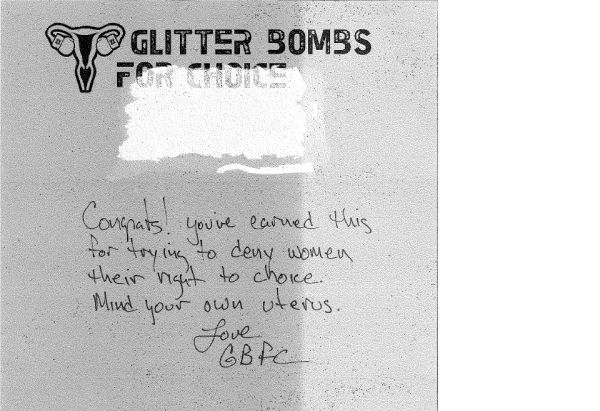 GLITTER BOMBS
FOR CHOICE
Congrats! you've earned this
for trying to deny women
their right to choice.
Mind your own uterus.
Love
GBFC